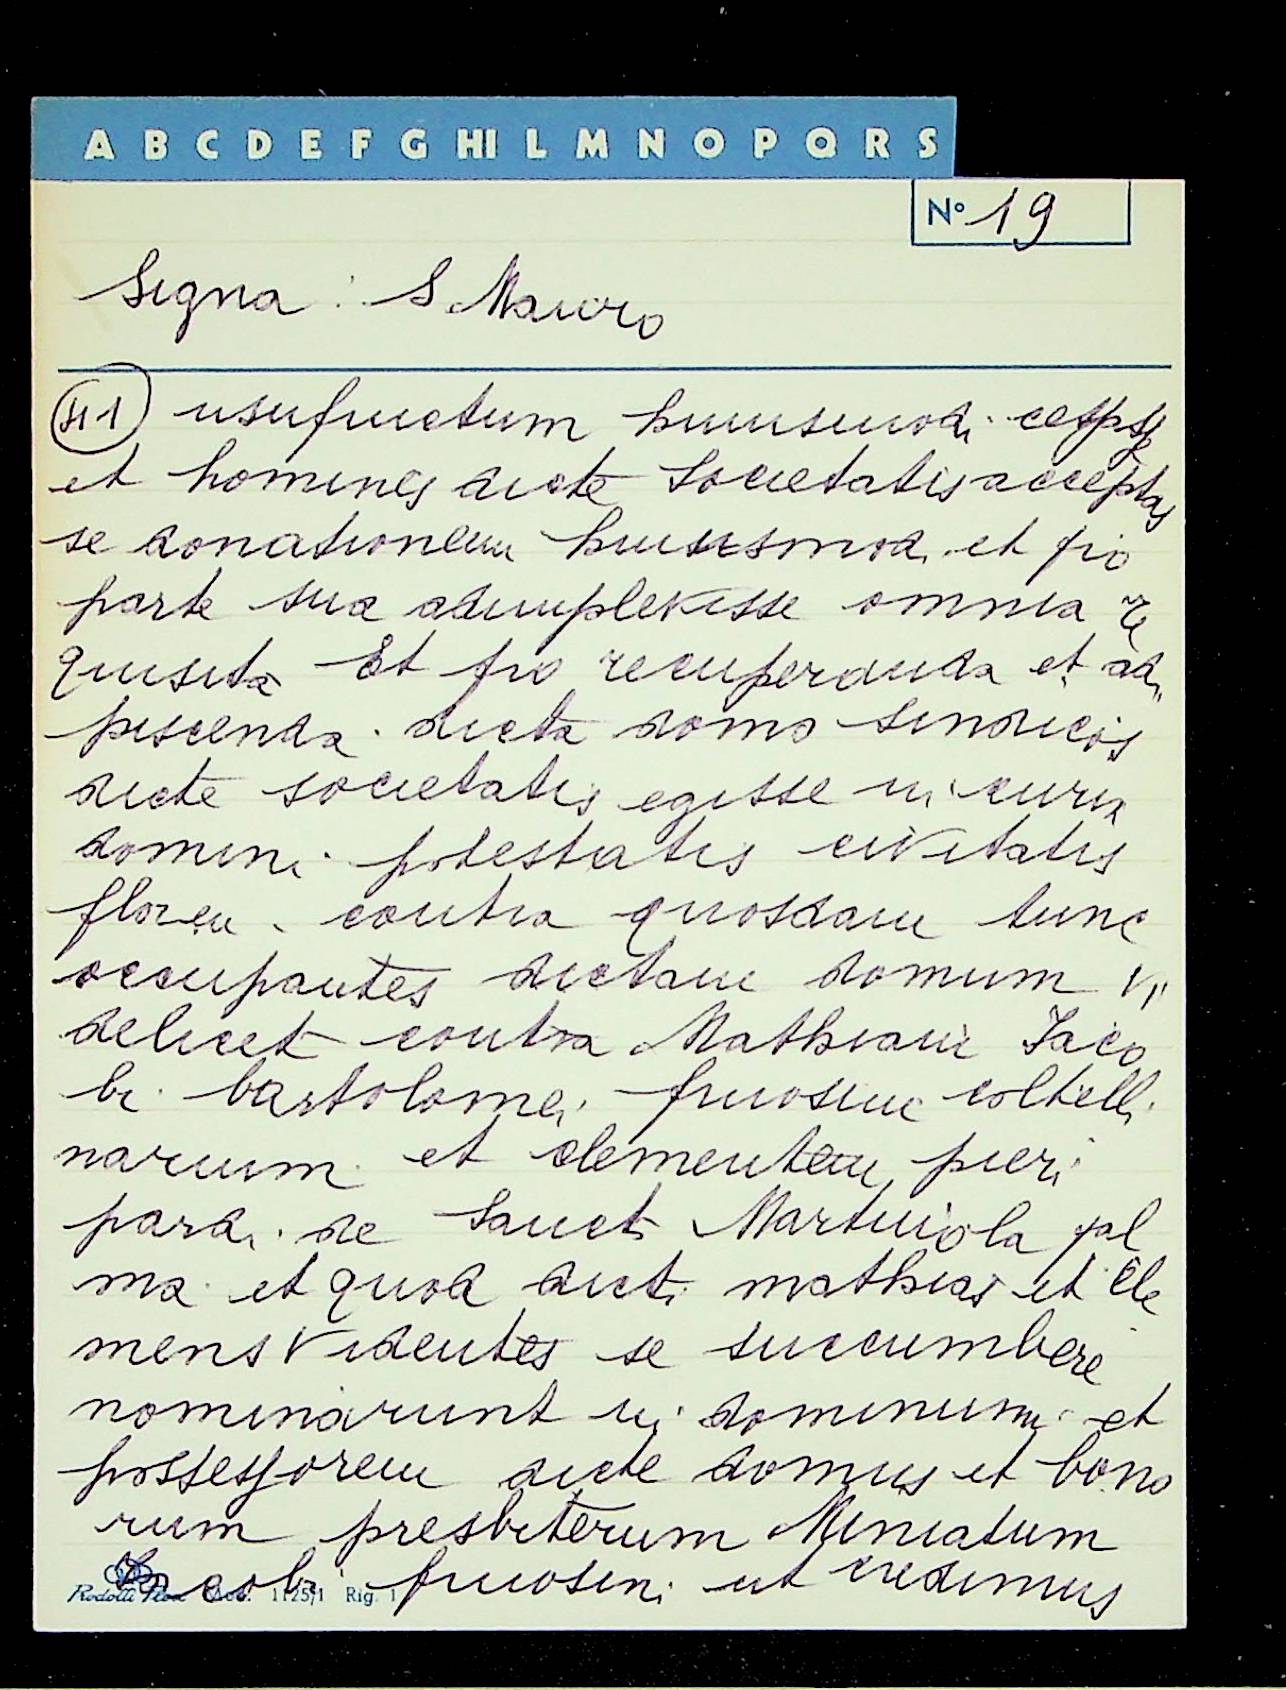 A B C D E F G HI L M N O P Q R S
Nº 19
Signa: S Mauro
usufructum huiusmodi
et homines dicte Societatis acceptas
se donationem huiusmodi et pro
parte sua adimplevisse omnia re
quisita Et pro recuperanda et adi
piscenda dicta domo sindicos
dicte societatis egisse in curia
domini potestatis civitatis
floren. contra quosdam tunc
occupantes dictam domum vi
delicet contra Mathiam Jaco
bi bartolomei frosini coltelli
narium et clementem pieri
pardi de Sancti Martinola pal
ma et quod dicti mathias et Cle
mens videntes se succumbere
nominarunt in dominum et
possessorem dicte domus et bono
rum presbiterum Miniatum
Jacobi frosini ut credimus
1125/1 Rig. 1